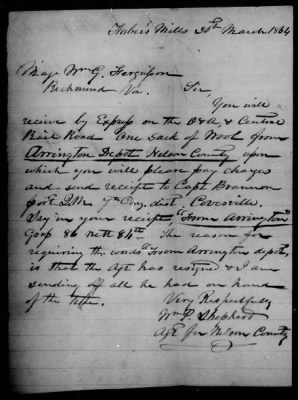 Faber's Mills 30th March 1864
Maj Wm G. Ferguson
Richmond Va. Sir,
You will
receive by Express on the O&A, & Central
Rail Road One Sack of Wool from
Arrington Depot Nelson County upon
which you will please pay charges
and send receipt to Capt Brannon
Qr 7th Cong. dist. Covesville.
Say in your receipt "From Arrington"
Gross 86 Nett 84th. The reason for
requiring the words "From Arrington depot,
is that the Agt has resigned & I am
sending off all he had on hand
of the tithe.
Very Respectfully
Wm P. Shepherd
Agt for Nelson County